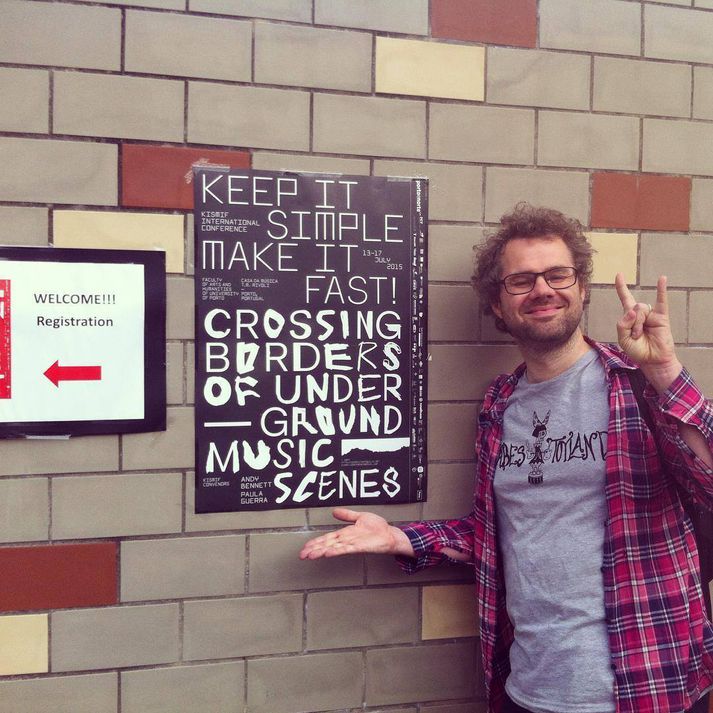 WELCOME!!!
Registration
KEEP IT
KISMIF
INTERNATIONAL
CONFERENCE
SIMPLE
MAKE IT
13-17
JULY
2015
FAST!
FACULTY
OF ARTS AND
HUMANITIES
OF UNIVERSITY
OF PORTO
CASA DA MÚSICA
T.M. RIVOLI
PORTO,
PORTUGAL
CROSSING
BORDERS
OF UNDER
GROUND
MUSIC
SCENES
KISMIF
CONVENORS
ANDY
BENNETT
PAULA
GUERRA
BABES TOYLAND